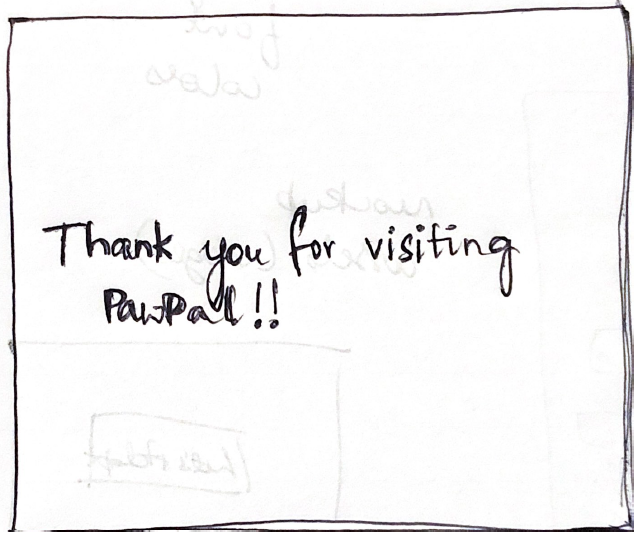 Thank you for visiting
PawPal!!